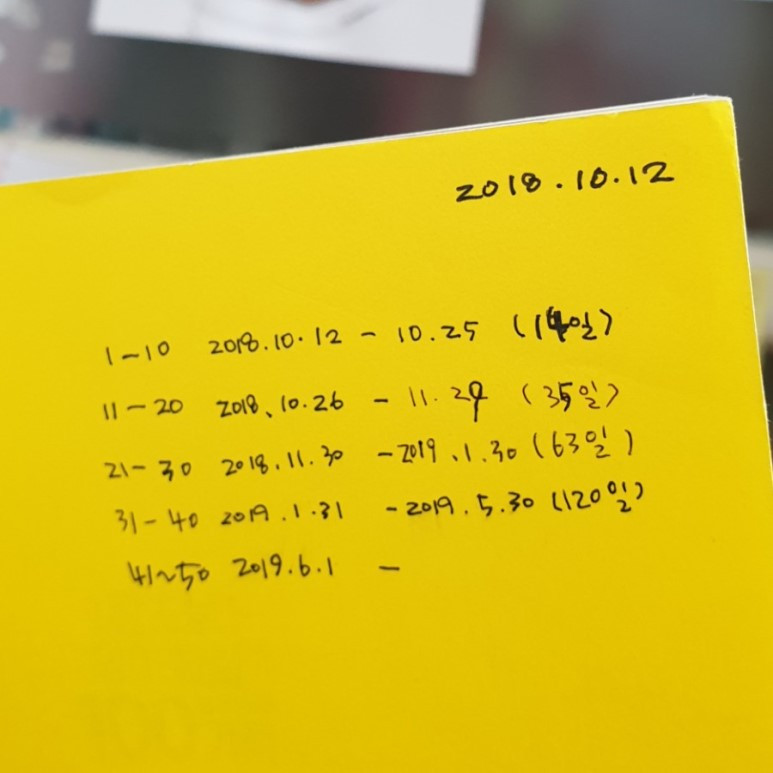 2018.10.12
1-10 2018.10.12 - 10.25 (14일)
11-20 2018.10.26 - 11.29 (35일)
21-30 2018.11.30 - 2019.1.30 (63일)
31-40 2019.1.31 - 2019.5.30 (120일)
41~50 2019.6.1 -